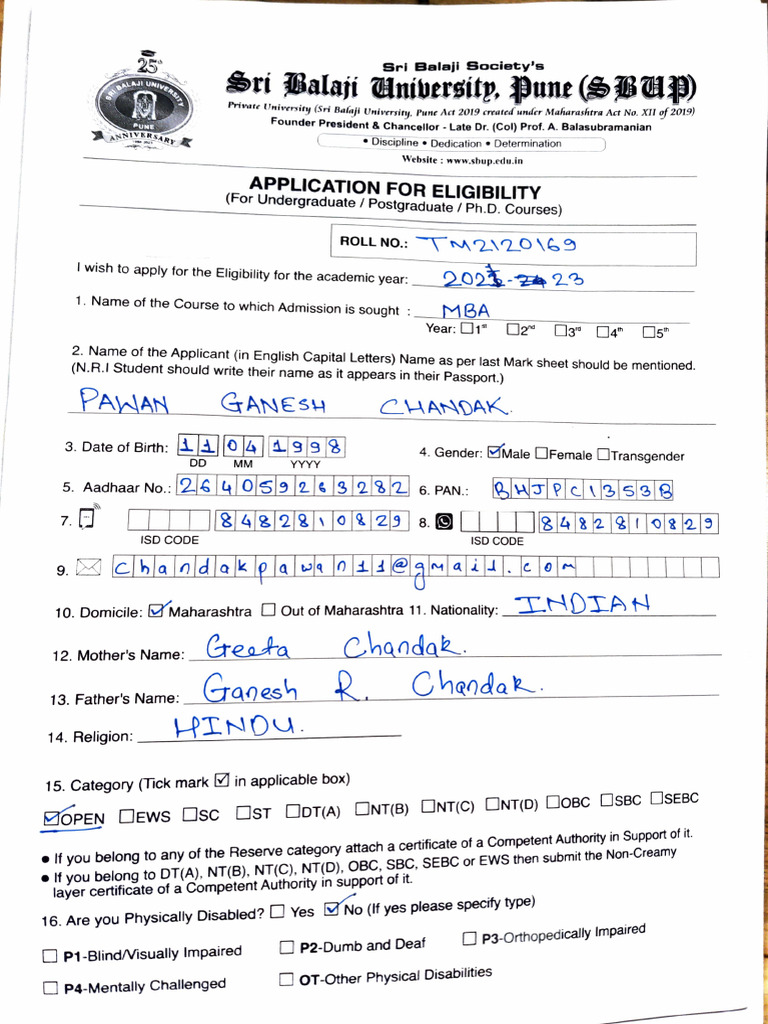 25th
SRI BALAJI UNIVERSITY
PUNE
ANNIVERSARY
Sri Balaji Society's
Sri Balaji University, Pune (SBUP)
Private University (Sri Balaji University, Pune Act 2019 created under Maharashtra Act No. XII of 2019)
Founder President & Chancellor - Late Dr. (Col) Prof. A. Balasubramanian
• Discipline • Dedication • Determination
Website : www.sbup.edu.in
APPLICATION FOR ELIGIBILITY
(For Undergraduate / Postgraduate / Ph.D. Courses)
ROLL NO.: TM2120169
I wish to apply for the Eligibility for the academic year: 2021-23
1. Name of the Course to which Admission is sought : MBA
Year: ☐1st ☐2nd ☐3rd ☐4th ☐5th
2. Name of the Applicant (in English Capital Letters) Name as per last Mark sheet should be mentioned.
(N.R.I Student should write their name as it appears in their Passport.)
PAWAN GANESH CHANDAK.
3. Date of Birth: 11 04 1998 4. Gender: ☑Male ☐Female ☐Transgender
DD MM YYYY
5. Aadhaar No.: 264059263282 6. PAN.: BHJPC1353B
7. 8482810829 8. 8482810829
ISD CODE ISD CODE
9. chandakpawan11@gmail.com
10. Domicile: ☑ Maharashtra ☐ Out of Maharashtra 11. Nationality: INDIAN
12. Mother's Name: Geeta Chandak.
13. Father's Name: Ganesh R. Chandak.
14. Religion: HINDU.
15. Category (Tick mark ☑ in applicable box)
☑OPEN ☐EWS ☐SC ☐ST ☐DT(A) ☐NT(B) ☐NT(C) ☐NT(D) ☐OBC ☐SBC ☐SEBC
• If you belong to any of the Reserve category attach a certificate of a Competent Authority in Support of it.
• If you belong to DT(A), NT(B), NT(C), NT(D), OBC, SBC, SEBC or EWS then submit the Non-Creamy
layer certificate of a Competent Authority in support of it.
16. Are you Physically Disabled? ☐ Yes ☑ No (If yes please specify type)
☐ P1-Blind/Visually Impaired ☐ P2-Dumb and Deaf ☐ P3-Orthopedically Impaired
☐ P4-Mentally Challenged ☐ OT-Other Physical Disabilities